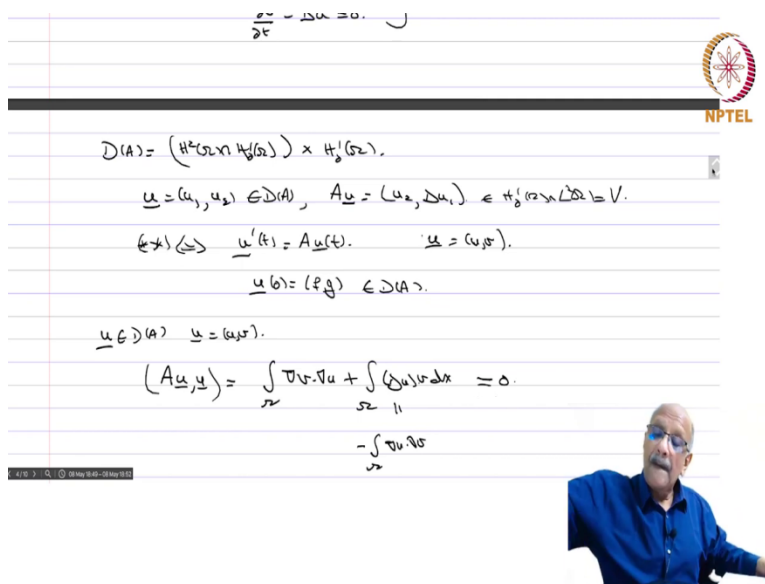 ∂u/∂t - Δu = 0. }
NPTEL
D(A) = (H²(Ω) ∩ H₀¹(Ω)) × H₀¹(Ω).
u = (u₁, u₂) ∈ D(A), Au = (u₂, Δu₁) ∈ H₀¹(Ω) × L²(Ω) = V.
(**) ⇔ u'(t) = Au(t). u = (u,v).
u(0) = (f,g) ∈ D(A).
u ∈ D(A) u = (u,v).
(Au,u) = ∫_Ω ∇v·∇u + ∫_Ω (Δu)v dx = 0.
||
-∫_Ω ∇u·∇v
4/10 08 May 18:49 - 08 May 18:52